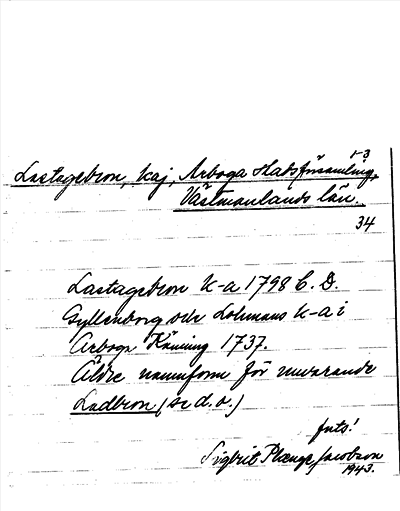 1-3
Lastagebron, kaj, Arboga stadsförsamling,
Västmanlands län.
34
Lastagebron k-a 1798 C. D.
Gyllenborg och Lohmans k-a i
Arboga Känning 1737.
Äldre namnform för nuvarande
Ladbron (se d. o.)
forts!
Sigbrit Plænge Jacobson
1943.